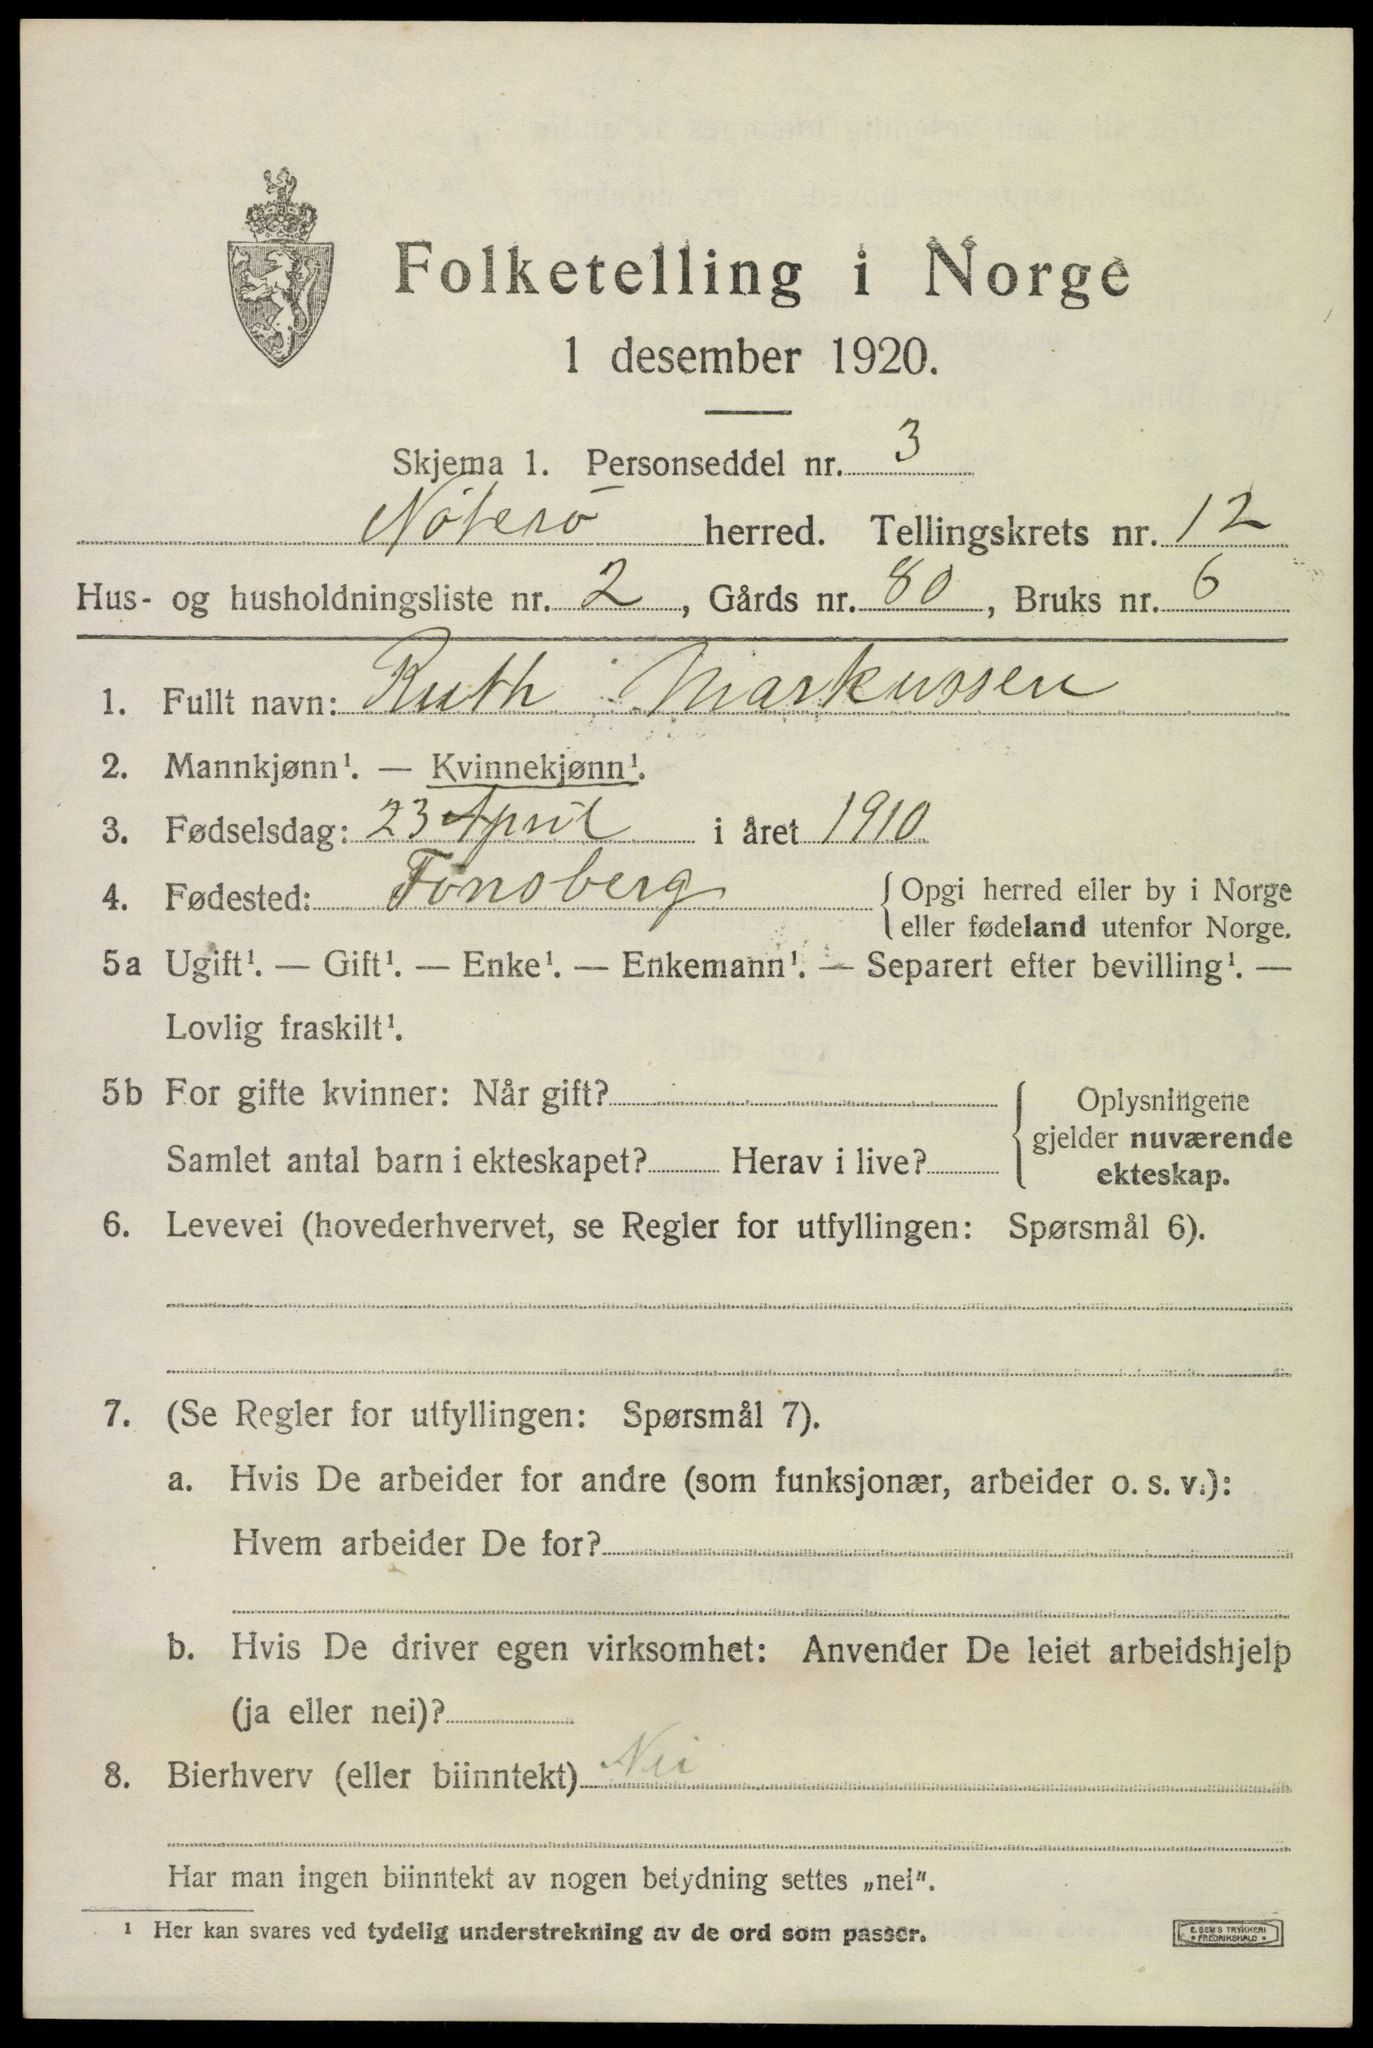 Folketelling i Norge
1 desember 1920.
Skjema 1. Personseddel nr. 3
Nøterø herred. Tellingskrets nr. 12
Hus- og husholdningsliste nr. 2, Gårds nr. 80, Bruks nr. 6
1. Fullt navn: Ruth Markussen
2. Mannkjønn¹. — Kvinnekjønn¹.
3. Fødselsdag: 23 April i året 1910
4. Fødested: Tønsberg { Opgi herred eller by i Norge
eller fødeland utenfor Norge.
5a Ugift¹. — Gift¹. — Enke¹. — Enkemann¹. — Separert efter bevilling¹. —
Lovlig fraskilt¹.
5b For gifte kvinner: Når gift? Oplysningene
gjelder nuværende
Samlet antal barn i ekteskapet? Herav i live? ekteskap.
6. Levevei (hovederhvervet, se Regler for utfyllingen: Spørsmål 6).
7. (Se Regler for utfyllingen: Spørsmål 7).
a. Hvis De arbeider for andre (som funksjonær, arbeider o. s. v.):
Hvem arbeider De for?
b. Hvis De driver egen virksomhet: Anvender De leiet arbeidshjelp
(ja eller nei)?
8. Bierhverv (eller biinntekt) Nei
Har man ingen biinntekt av nogen betydning settes „nei".
¹ Her kan svares ved tydelig understrekning av de ord som passer.
E. SEM'S TRYKKERI
FREDRIKSHALD